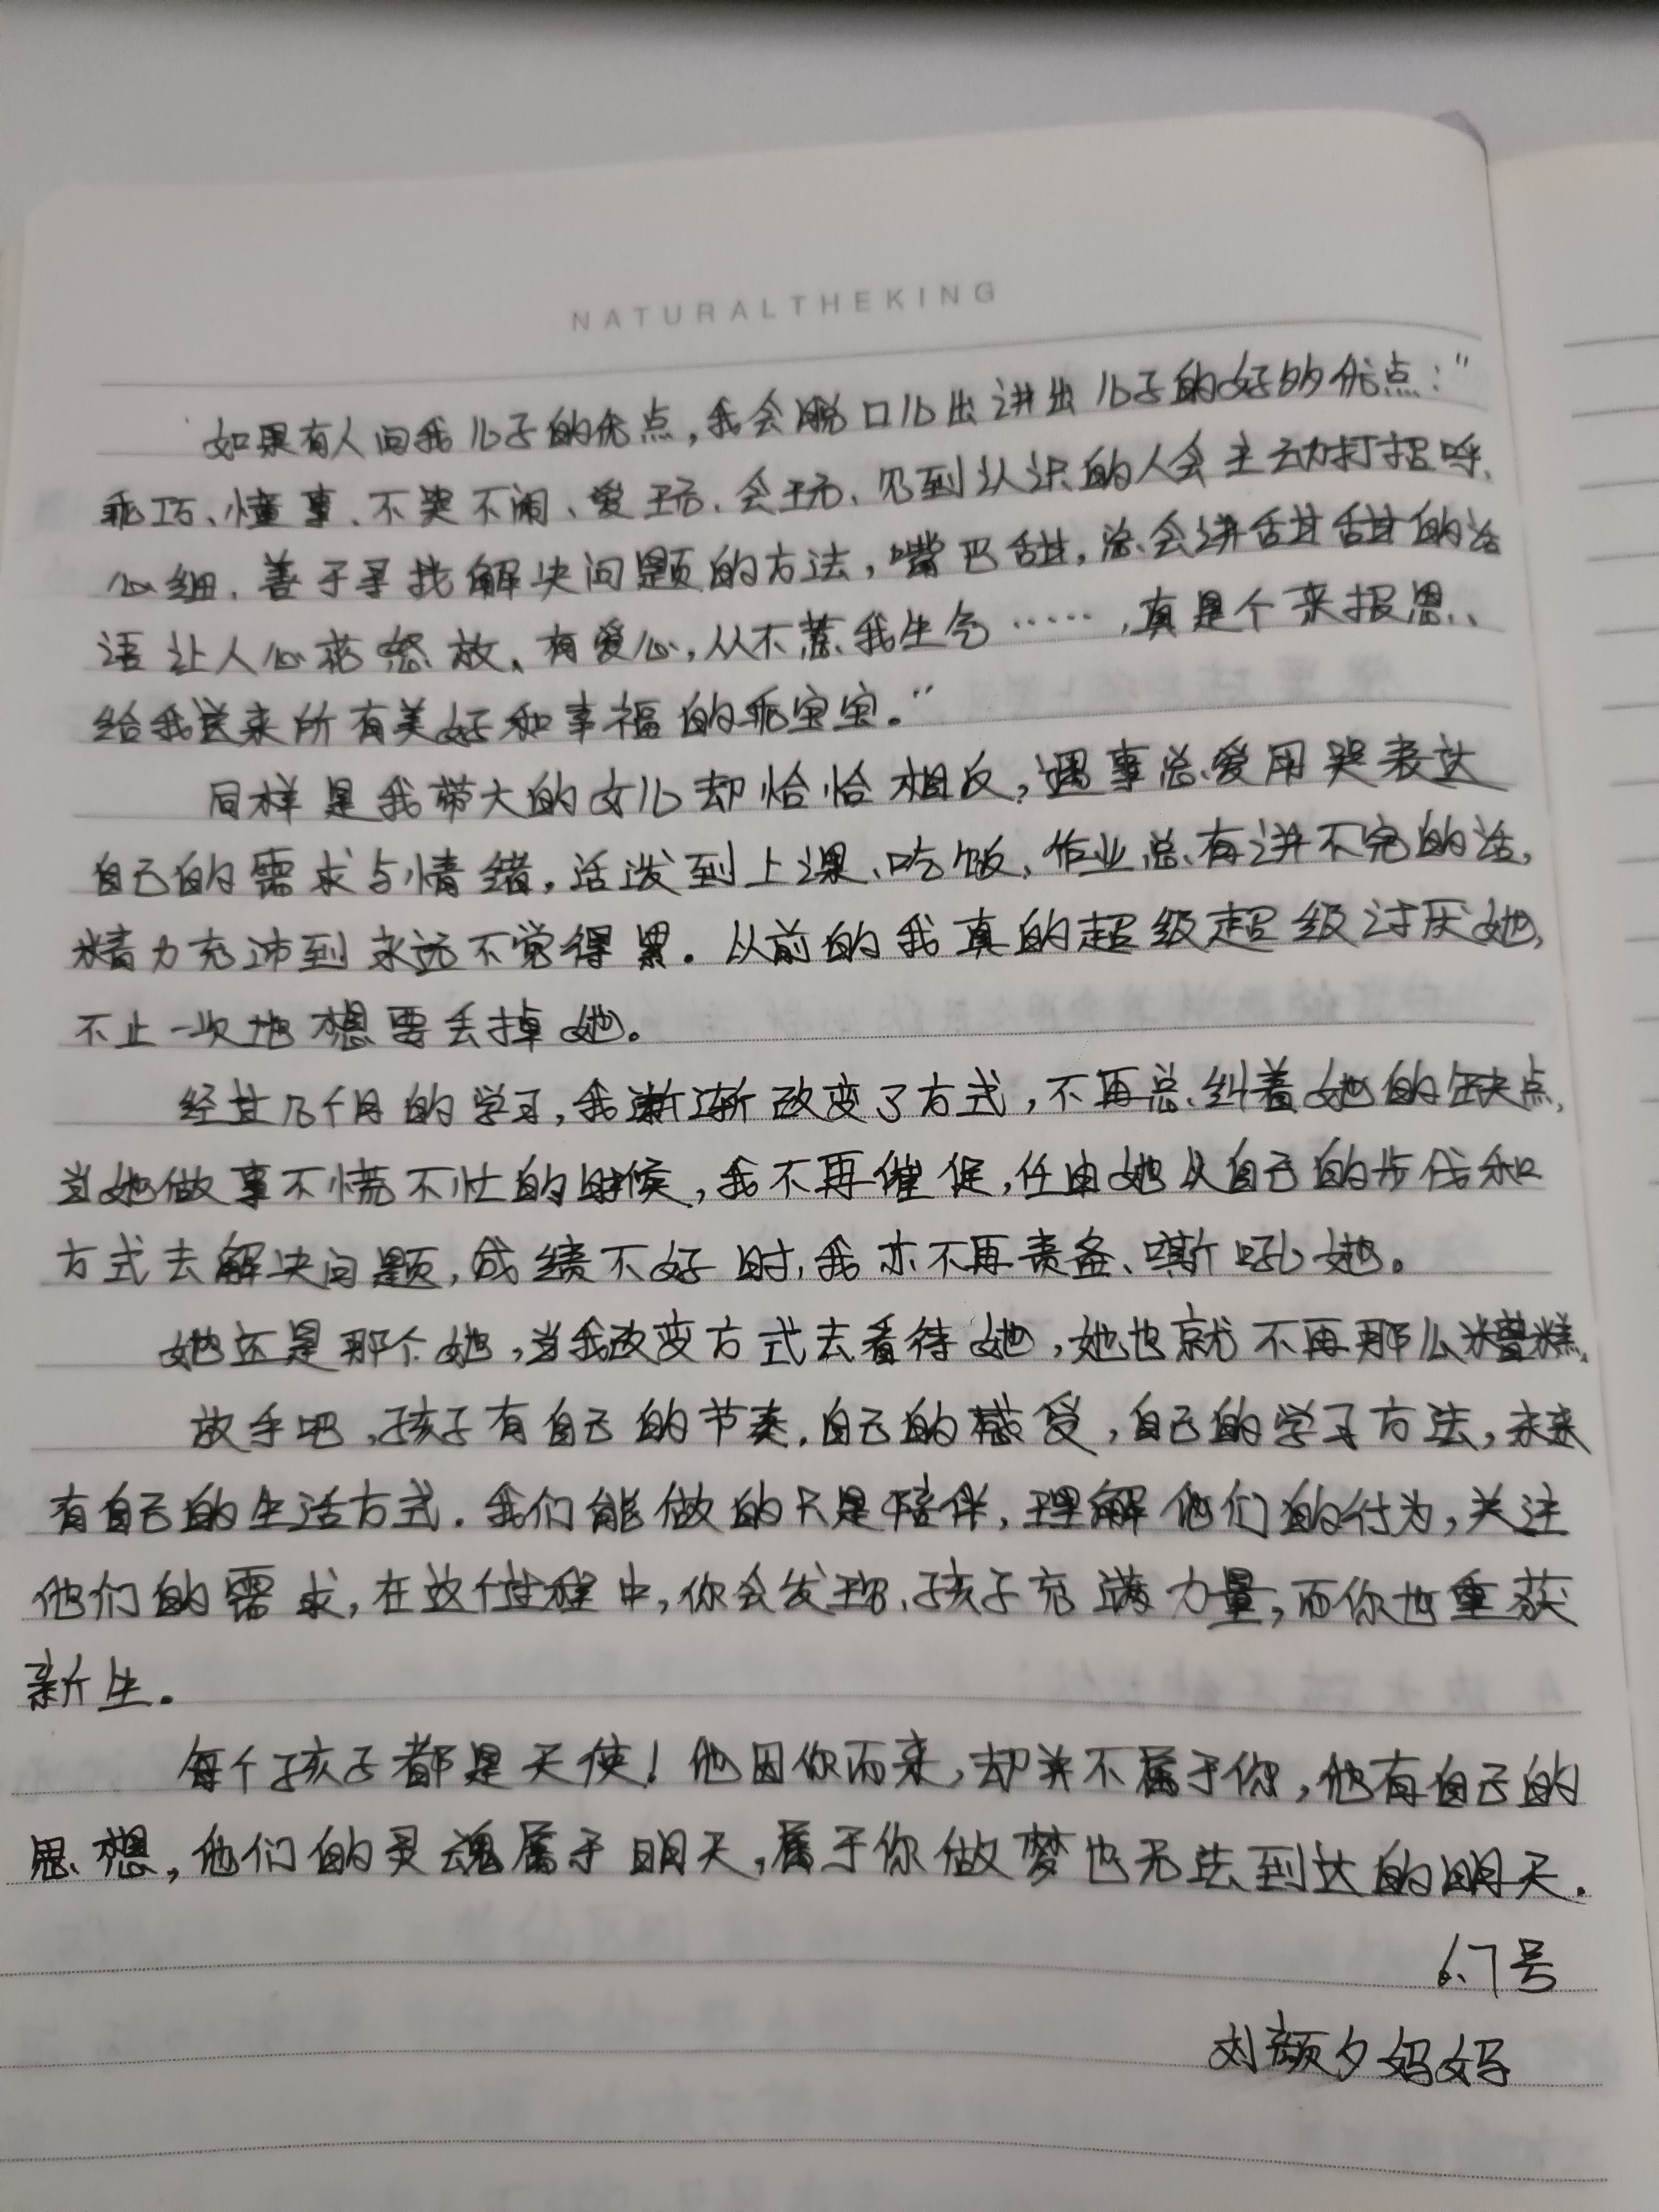 NATURALTHEKING
如果有人问我儿子的优点，我会脱口儿出讲出儿子的好多优点："
乖巧、懂事、不哭不闹、爱玩、会玩、见到认识的人会主动打招呼、
心细、善于寻找解决问题的方法，嘴巴甜，总会讲甜甜的话
语让人心花怒放、有爱心，从不惹我生气……，真是个来报恩、
给我送来所有美好和幸福的乖宝宝。"
同样是我带大的女儿却恰恰相反，遇事总爱用哭表达
自己的需求与情绪，活泼到上课、吃饭、作业总有讲不完的话，
精力充沛到永远不觉得累。从前的我真的超级超级讨厌她，
不止一次地想要丢掉她。
经过几个月的学习，我渐渐改变了方式，不再总纠着她的缺点，
当她做事不慌不忙的时候，我不再催促，任由她从自己的步伐和
方式去解决问题，成绩不好时，我亦不再责备、嘶吼她。
她还是那个她，当我改变方式去看待她，她也就不再那么糟糕。
放手吧，孩子有自己的节奏，自己的感受，自己的学习方法，未来
有自己的生活方式。我们能做的只是陪伴，理解他们的行为，关注
他们的需求，在这个过程中，你会发现、孩子充满力量，而你也重获
新生。
每个孩子都是天使！他因你而来，却并不属于你，他有自己的
思想，他们的灵魂属于明天，属于你做梦也无法到达的明天。
6.7号
刘颜夕妈妈